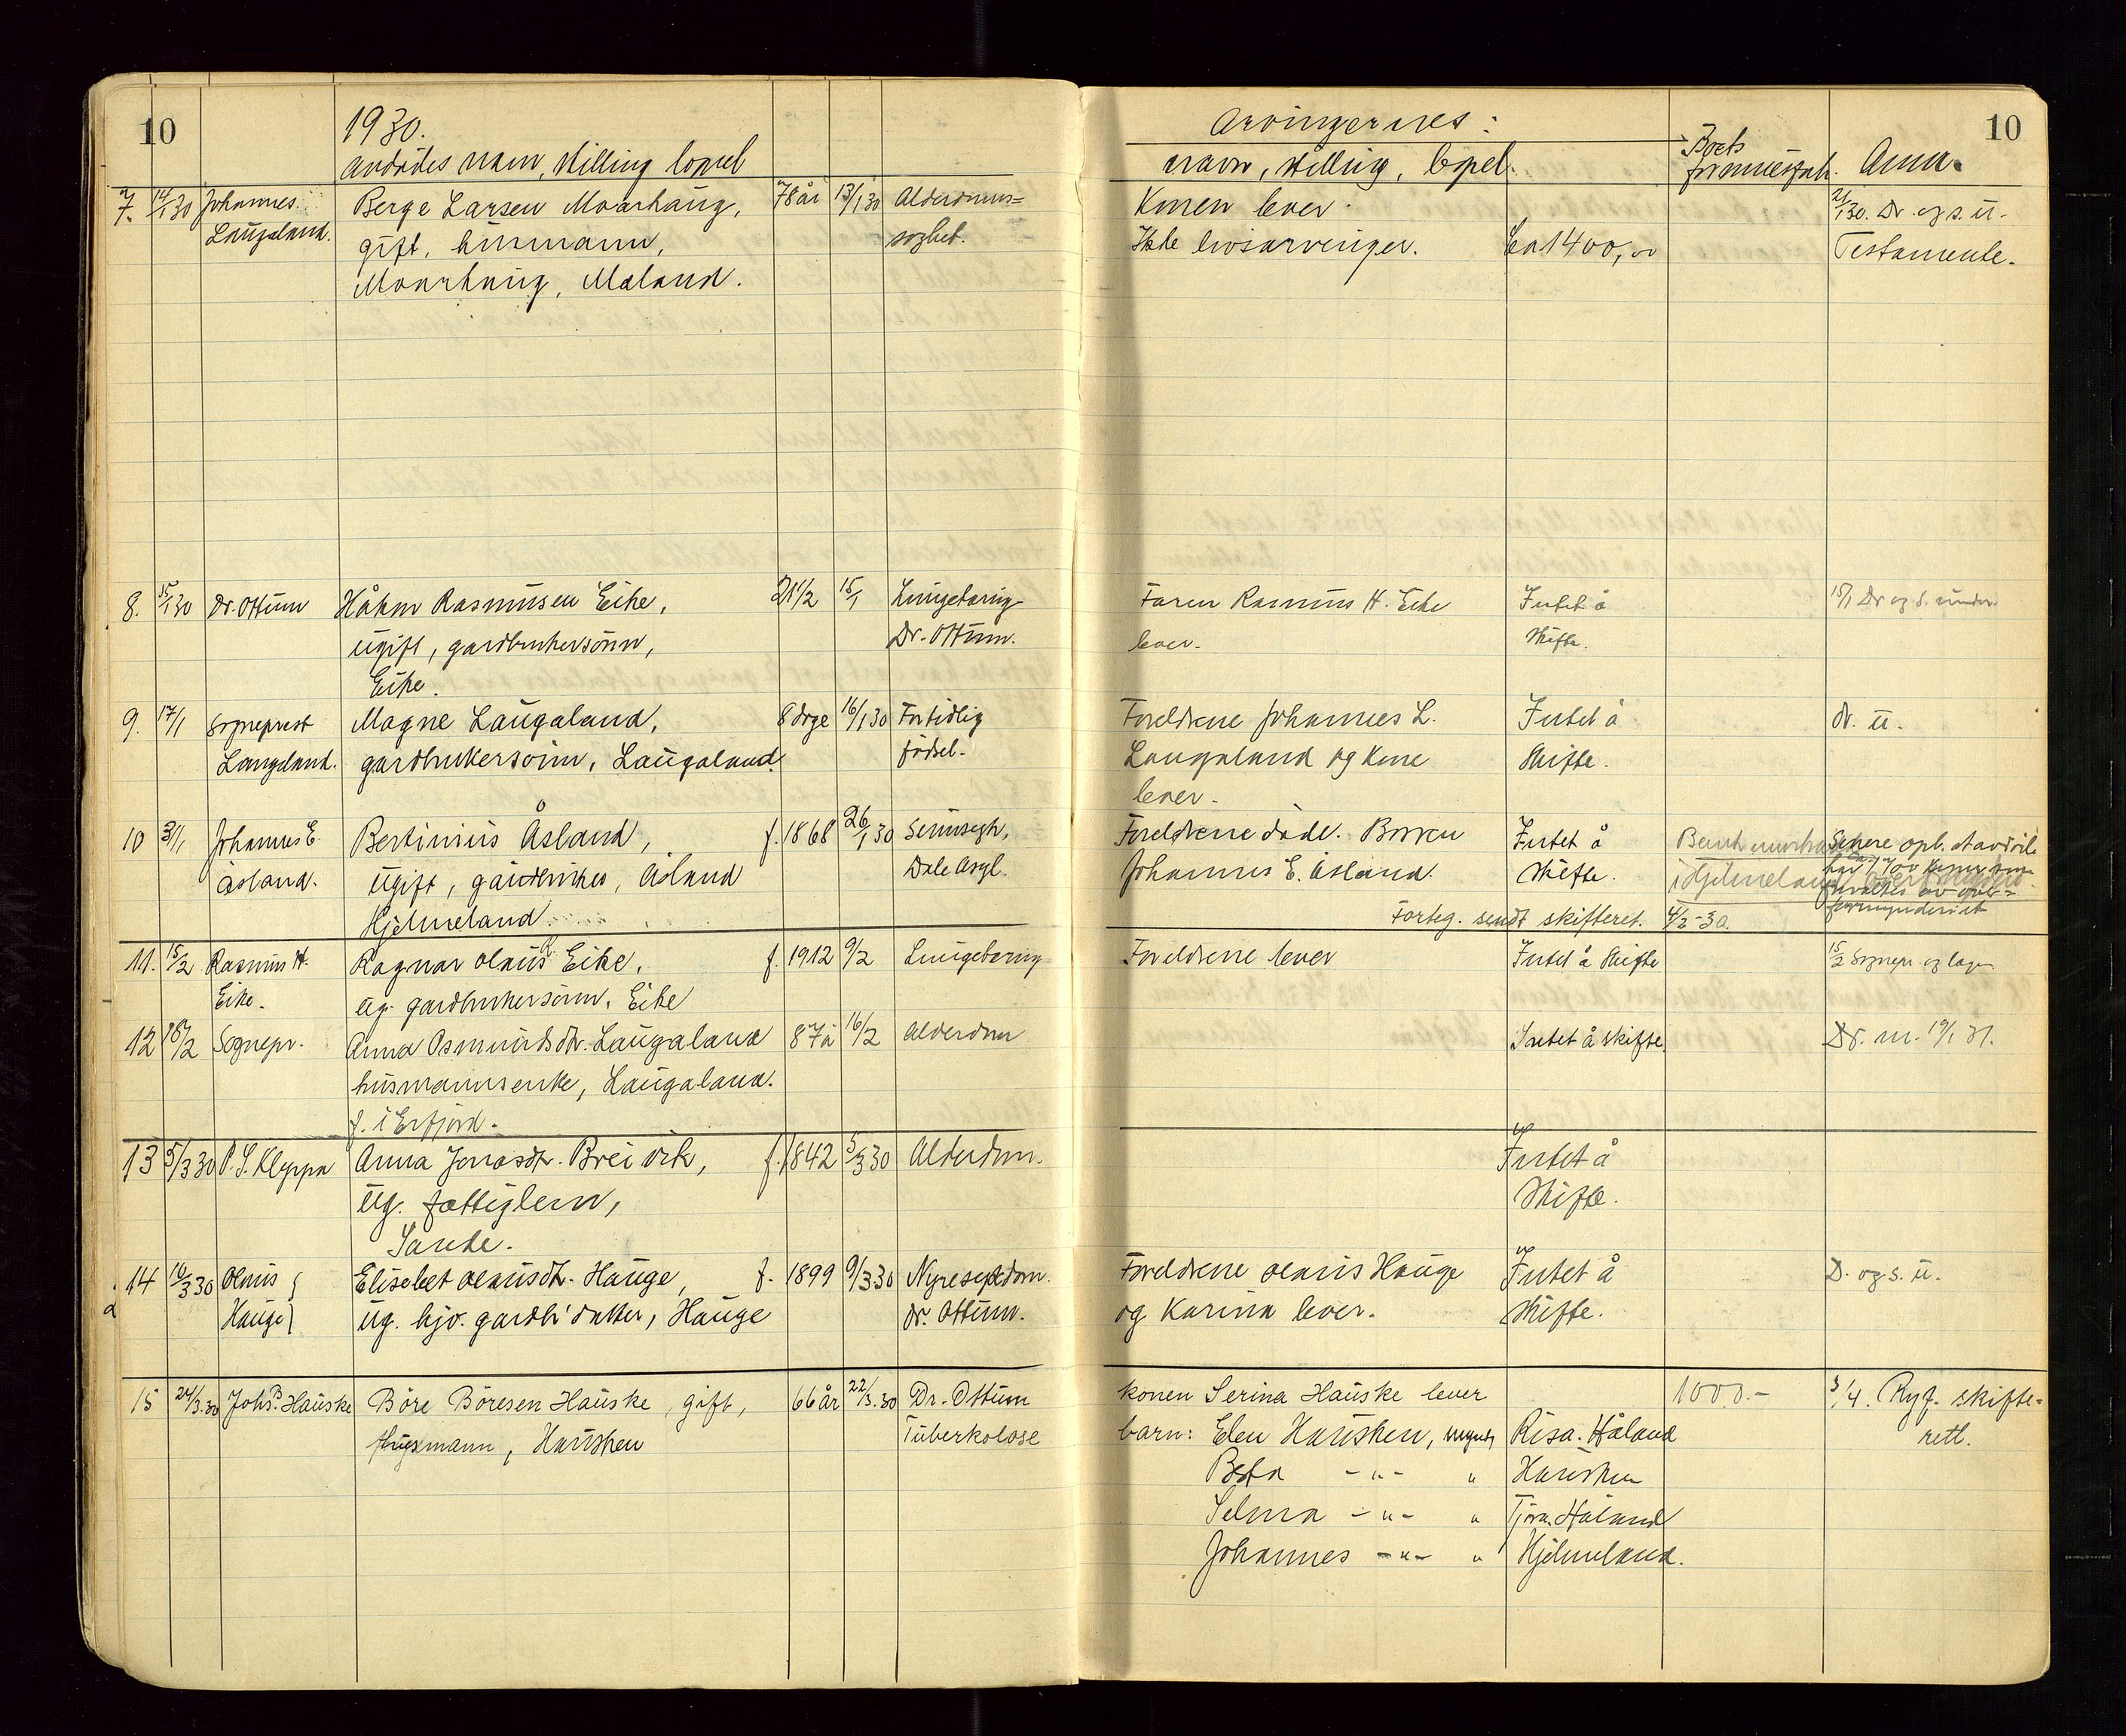 10
1930.
Avdødes navn, stilling bopel
7. 14/1 30 Johannes Berge Larsen Moarhaug, 78 år 13/1 30 Alderdoms=
Laugaland. gift, husmann, svghet.
Moarhaug, Mæland.
8. 15/1 30 Dr. Ottum Håkon Rasmusen Eike, 21 1/2 15/1 Lungebetæng
ugift, gardbrukersønn, Dr. Ottum.
Eike.
9. 17/1 Sogneprest Magne Laugaland, 8 dage 16/1 30 Fortidlig
Laugaland. gardbrukersønn, Laugaland. fødsel.
10 31/1 Johannes E. Bertinius Åsland, f. 1868 26/1 30 Sinnsygh,
Åsland. ugift, gardbruker, Åsland Dale Asyl.
Hjelmeland
11. 15/2 Rasmus H. Ragnar Olaus R. Eike, f. 1912 9/2 Lungebetæng
Eike. ug. gardbrukersønn, Eike
12 18/2 Sognepr. Anna Osmundsdtr. Laugaland 87 å 16/2 Alderdom
husmannsenke, Laugaland.
f. i Erfjord.
13 5/3 30 P. S. Kleppa Anna Jonasdtr. Breivik, f. 1842 5/3 30 Alderdom.
ug. fattiglem,
Sande.
14 10/3 30 Olaus Elisabet Olausdtr. Hauge, f. 1899 9/3 30 Nyresykdom.
Hauge ug. hjv. gardbr datter, Hauge dr. Ottum.
15 24/3.30 Johs B. Hauske Børe Børesen Hauske, gift, 66 år 22/3.30 Dr. Ottum
husmann, Hausken Tuberkolose
Arvingernes: 10
navn, stilling, bopel. Boets formuesforh. Anm.
Konen lever. 21/1 30. Dr. og s. u.
Ikke livsarvinger. Ca 1400,00 Testamente.
Faren Rasmus H. Eike Intet å 15/1 Dr og s. under.
lever. skifte.
Foreldrene Johannes L. Intet å dr. u.
Laugaland og kone skifte.
lever.
Foreldrene døde. Broren Intet å Senere opl. at avdøde
Johannes E. Åsland. skifte. i Hjelmeland
Forteg. sendt skifteret. 4/2-30.
Foreldrene lever Intet å skifte 15/2 Sognepr. og lagm
Intet å skifte. Dr. m. 19/1 31.
Intet å
skifte.
Foreldrene Olaus Hauge Intet å D. og s. u.
og Karina lever. skifte.
konen Serina Hauske lever 1000.- 3/4. Ryf. skifte=
barn: Elen Hausken, myndig Risa. Håland rett.
Berta -"- " Hausken
Selma -"- " Tjøra. Håland
Johannes -"- " Hjelmeland.